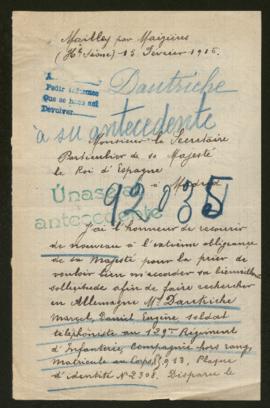 Mailley par Mazières
(Hte Saône) 15 Février 1916.
A
Pedir informes
Que se haga así
Devolver
Dautriche
a su antecedente
Monsieur le Secrétaire
Particulier de sa Majesté
le Roi d'Espagne
Madrid
Únase
antecedente
92.035
J'ai l'honneur de recourir
de nouveau à l'extrême obligeance
de sa Majesté pour la prier de
vouloir bien m'accorder sa bienveillante
sollicitude afin de faire rechercher
en Allemagne Mr Dautriche
Marcel, Daniel Eugène soldat
téléphoniste au 129e Régiment
d'Infanterie, Compagnie hors rang,
Matricule au Corps 8913, Plaque
d'identité No 2308. Disparu le